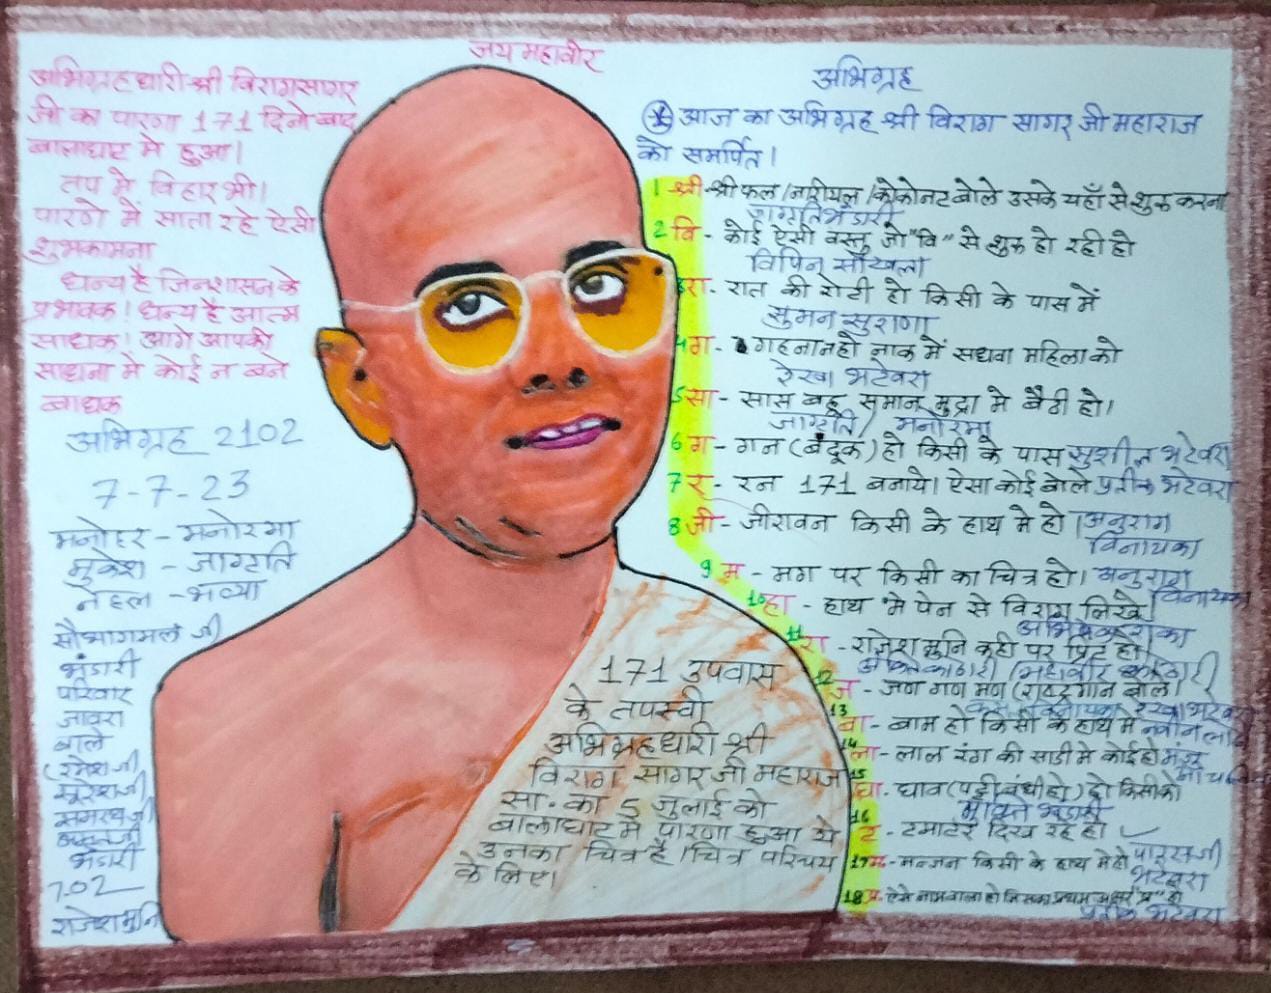 जय महावीर
अभिग्रहधारी श्री विरागसागर
जी का पारणा 171 दिनो बाद
बालाघाट मे हुआ।
तप मे विहार भी।
पारणे में साता रहे ऐसी
शुभकामना
धन्य है जिनशासन के
प्रभावक! धन्य है आत्म
साधक! आगे आपकी
साधना मे कोई न बने
बाधक
अभिग्रह 2102
7-7-23
मनोहर - मनोरमा
मुकेश - जाग्रति
नेहल - भव्या
सौभागमल जी
भंडारी
परिवार
जावरा
वाले
(रमेश जी
सुरेश जी
समरथ जी
भंडारी
7.02
राजेश मुनि
अभिग्रह
आज का अभिग्रह श्री विराग सागर जी महाराज
को समर्पित।
1 श्री - श्रीफल/नारीयल/कोकोनट बोले उसके यहाँ से शुरू करना
जाग्रति भंडारी
2 वि - कोई ऐसी वस्तु जो "वि" से शुरू हो रही हो
विपिन सांखला
3 रा - रात की रोटी हो किसी के पास में
सुमन सुराणा
4 ग - गहना न हो नाक में सधवा महिला को
रेखा भटेवरा
5 सा - सास बहू समान मुद्रा मे बैठी हो।
जाग्रति/मनोरमा
6 ग - गन (बंदूक) हो किसी के पास सुशील भटेवरा
7 र - रन 171 बनाये। ऐसा कोई बोले प्रतीक भटेवरा
8 जी - जीरावन किसी के हाथ मे हो। अनुराग
विनायका
9 म - मग पर किसी का चित्र हो। अनुराग
विनायका
10 हा - हाथ मे पेन से विराग लिखे।
अभिषेक राका
11 रा - राजेश मुनि कही पर प्रिंट हो।
12 ज - जण गण मण (राष्ट्रगान बोले।
13 बा - बाम हो किसी के हाथ मे
14 ला - लाल रंग की साडी मे कोई हो मंजू
15 घा - घाव (पट्टी बंधी हो) हो किसी को
भंडारी
16 ट - टमाटर दिख रहे हो
17 म - मन्जन किसी के हाथ मे हो पारसजी
भटेवरा
18 प्र - ऐसे नामवाला हो जिसका प्रथम अक्षर "प्र" हो
प्रतीक भटेवरा
171 उपवास
के तपस्वी
अभिग्रहधारी श्री
विराग सागर जी महाराज
सा. का 5 जुलाई को
बालाघाट मे पारणा हुआ ये
उनका चित्र है। चित्र परिचय
के लिए।